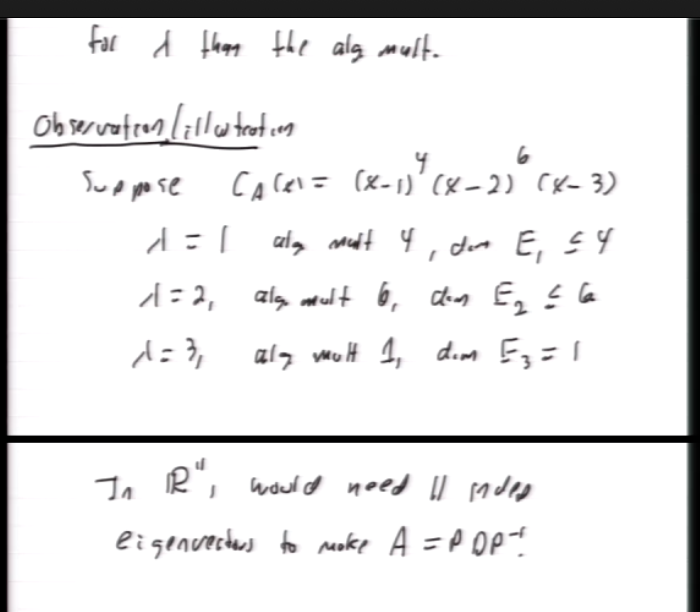 for λ than the alg mult.
Observation/illustration
Suppose C_A(x) = (x-1)^4 (x-2)^6 (x-3)
λ = 1 alg mult 4, dim E_1 ≤ 4
λ = 2, alg mult 6, dim E_2 ≤ 6
λ = 3, alg mult 1, dim E_3 = 1
In ℝ^11, would need 11 indep
eigenvectors to make A = PDP^-1.